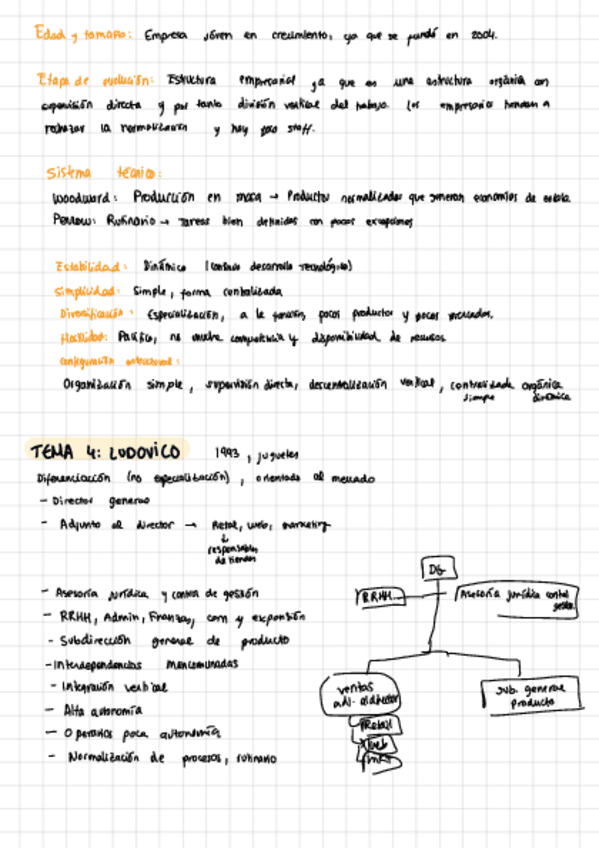 Edad y tamaño: Empresa jóven en crecimiento, ya que se fundó en 2004.
Etapa de evolución: Estructura empresarial ya que es una estructura orgánica con
supervisión directa y por tanto división vertical del trabajo. Los empresarios tienden a
rechazar la normalización y hay poco staff.
Sistema técnico:
Woodward: Producción en masa → Productos normalizados que generan economías de escala.
Perrow: Rutinario → Tareas bien definidas con pocas excepciones
Estabilidad: Dinámico (continuo desarrollo tecnológico)
Simplicidad: Simple, forma centralizada
Diversificación: Especialización, a le función, pocos productos y pocos mercados.
Hostilidad: Pacífico, no mucha competencia y disponibilidad de recursos
Configuración estructural:
Organización simple, supervisión directa, descentralización vertical, centralizada orgánica
simple dinámica
TEMA 4: LUDOVICO 1993, juguetes
Diferenciación (no especialización), orientada al mercado
- Director general
- Adjunto al director → Retail, web, marketing
↓
responsables
de tiendas
- Asesoría jurídica y control de gestión
- RRHH, Admin, Finanzas, com y expansión
- Subdirección general de producto
- Interdependencias mancomunadas
- Integración vertical
- Alta autonomía
- Operarios poca autonomía
- Normalización de procesos, rutinario
DG
RRHH
Asesoría jurídica control
gestión
ventas
adj. al director
Retail
Web
mkt
Sub. general
producto